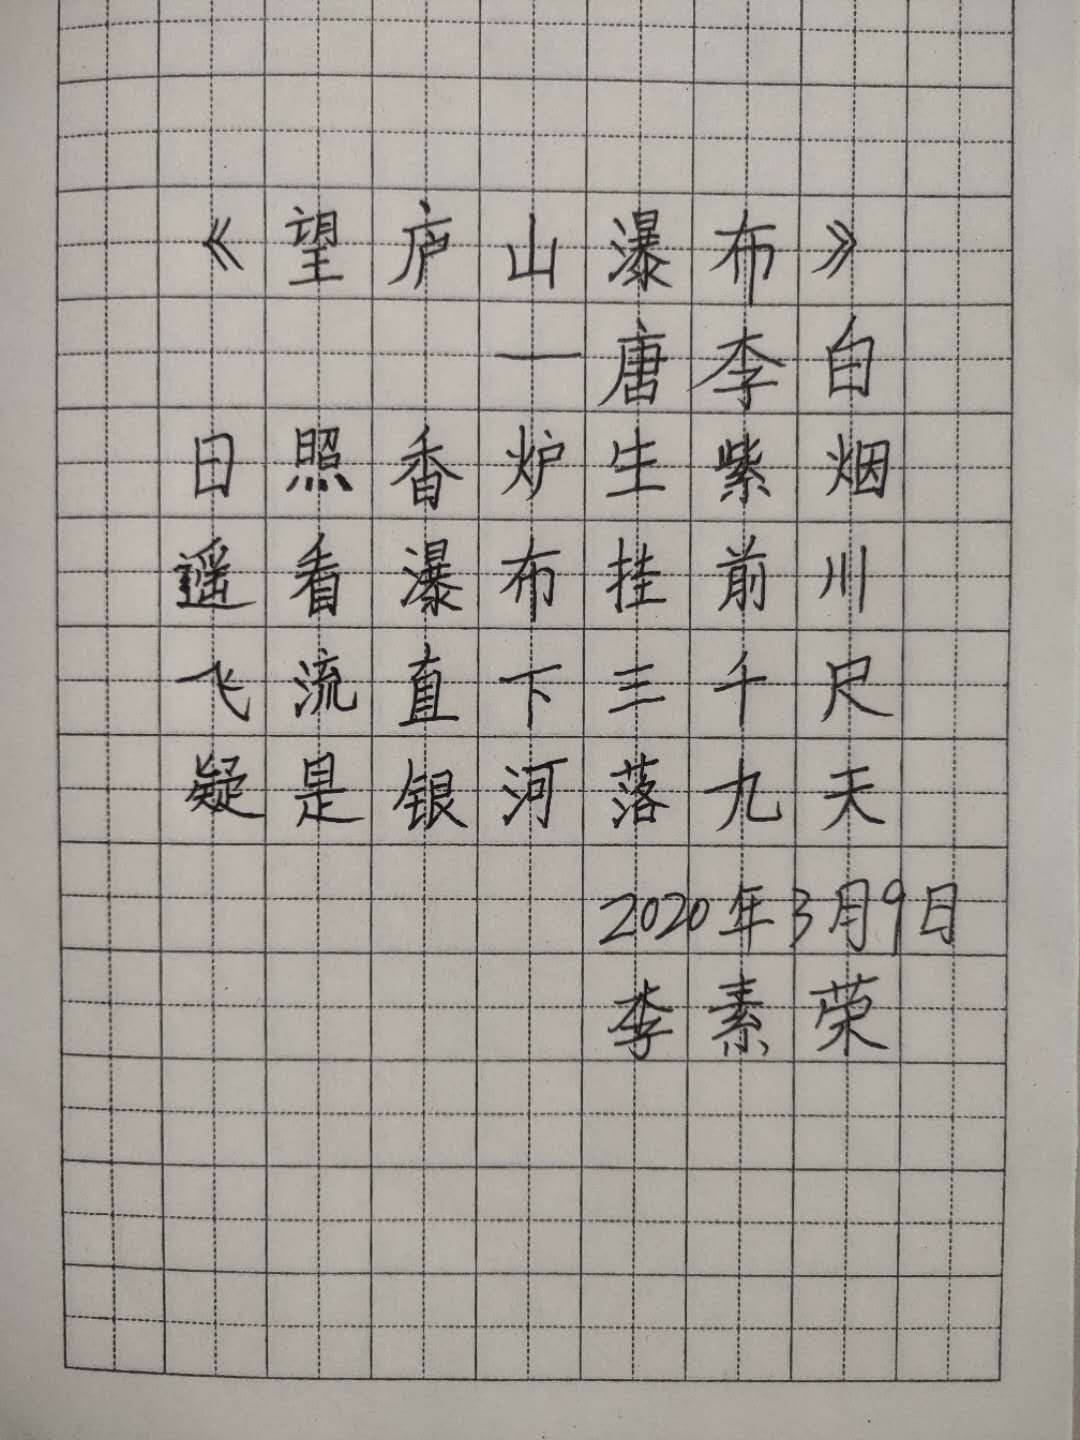 《望庐山瀑布》
—唐李白
日照香炉生紫烟
遥看瀑布挂前川
飞流直下三千尺
疑是银河落九天
2020年3月9日
李素荣